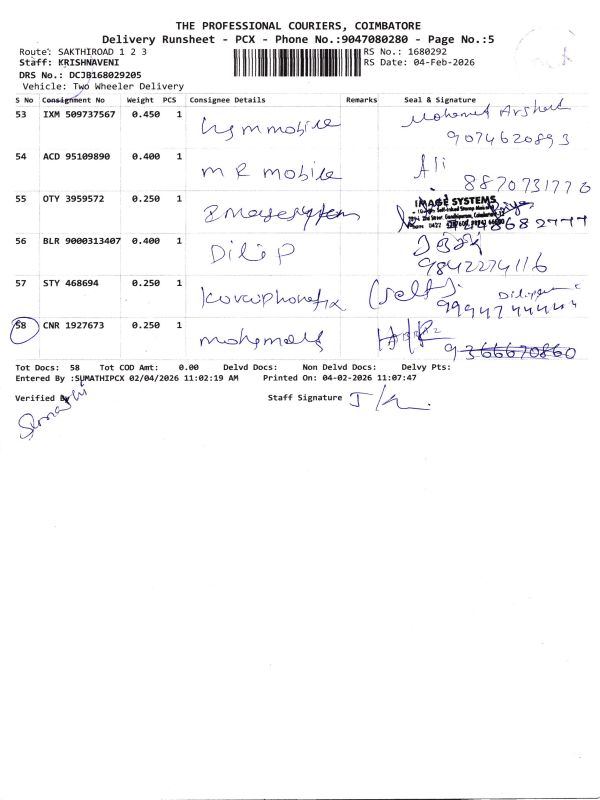 THE PROFESSIONAL COURIERS, COIMBATORE
Delivery Runsheet - PCX - Phone No.:9047080280 - Page No.:5
Route: SAKTHIROAD 1 2 3 RS No.: 1680292
Staff: KRISHNAVENI RS Date: 04-Feb-2026
DRS No.: DCJB168029205
Vehicle: Two Wheeler Delivery
S No Consignment No Weight PCS Consignee Details Remarks Seal & Signature
53 IXM 509737567 0.450 1 mobile Mohamed Arshad
9074620893
54 ACD 95109890 0.400 1 M R mobile Ali
8870731770
IMAGE SYSTEMS
55 OTY 3959572 0.250 1
56 BLR 9000313407 0.400 1 Dilip
9842274116
57 STY 468694 0.250 1 (self)
9994744444
58 CNR 1927673 0.250 1
9366670860
Tot Docs: 58 Tot COD Amt: 0.00 Delvd Docs: Non Delvd Docs: Delvy Pts:
Entered By :SUMATHIPCX 02/04/2026 11:02:19 AM Printed On: 04-02-2026 11:07:47
Verified By Staff Signature
Sumathi